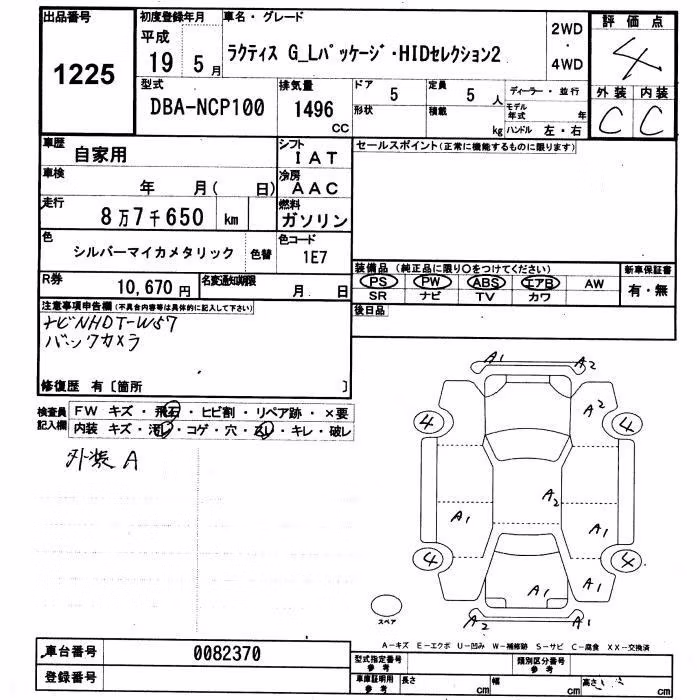 出品番号
1225
初度登録年月
平成
19 5月
車名・グレード
ラクティス G_Lパッケージ・HIDセレクション2
2WD
・
4WD
評価点
4
外装 内装
C C
型式
DBA-NCP100
排気量
1496
CC
ドア
5
定員
5 人
形状
積載
kg
ディーラー・並行
モデル年式 年
ハンドル 左・右
車歴
自家用
シフト
IAT
車検
年 月( 日)
冷房
AAC
走行
8万7千650 km
燃料
ガソリン
色
シルバーマイカメタリック
色替
色コード
1E7
R券
10,670円
名変通知期限
月 日
セールスポイント(正常に機能するものに限ります)
装備品(純正品に限り○をつけてください)
PS PW ABS エアB AW
SR ナビ TV カワ
新車保証書
有・無
後日品
注意事項申告欄(不具合内容等は具体的に記入して下さい)
ナビNHDT-W57
バックカメラ
修復歴 有〔箇所 〕
検査員
記入欄
FW キズ・飛石・ヒビ割・リペア跡・×要
内装 キズ・汚レ・コゲ・穴・スレ・キレ・破レ
外装 A
A1 A2
A2
4 4
A2
A1 A1
4 4
A1 A1
A2 A1
スペア
A-キズ E-エクボ U-凹み W-補修跡 S-サビ C-腐食 XX-交換済
車台番号
0082370
登録番号
型式指定番号
参考
類別区分番号
参考
車庫証明用
参考
長さ cm 幅 cm 高さ cm